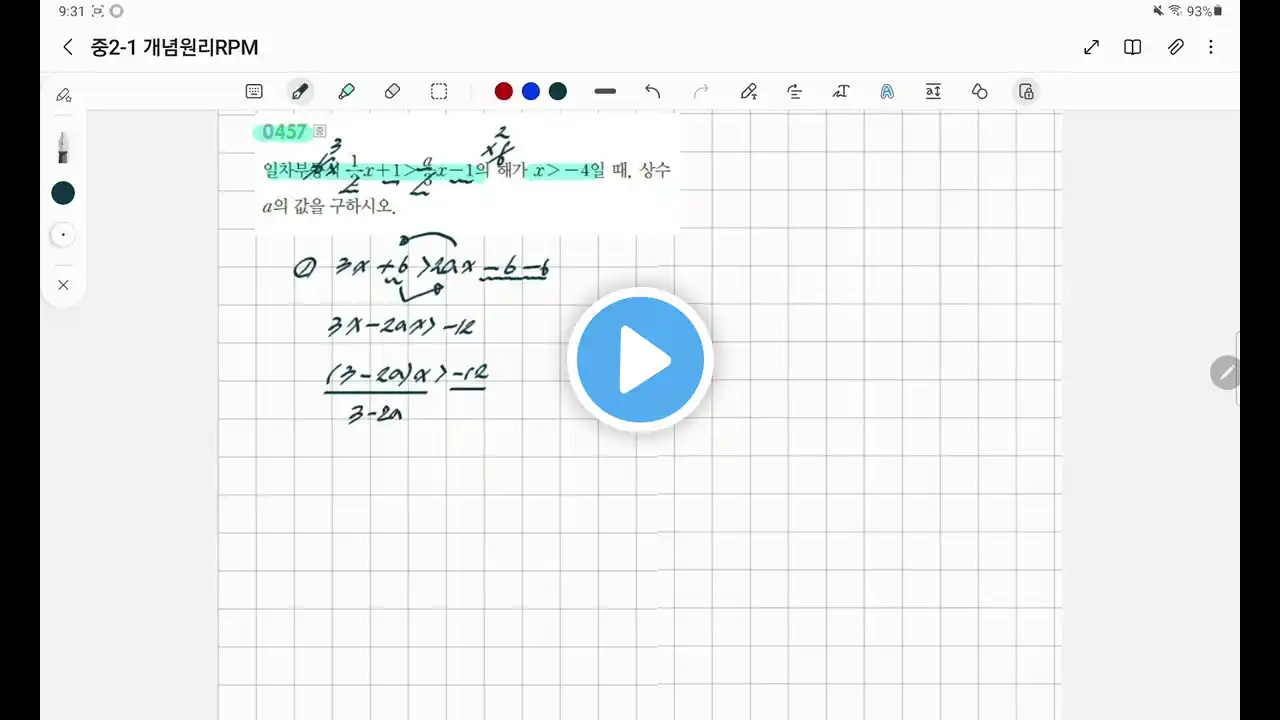 9:31 93%
중2-1 개념원리RPM
0457 중
3 2
×6 ×6
일차부등식 1/2x+1>a/3x-1의 해가 x>-4일 때, 상수
a의 값을 구하시오.
① 3x+6>2ax-6-6
3x-2ax>-12
(3-2a)x>-12
3-2a